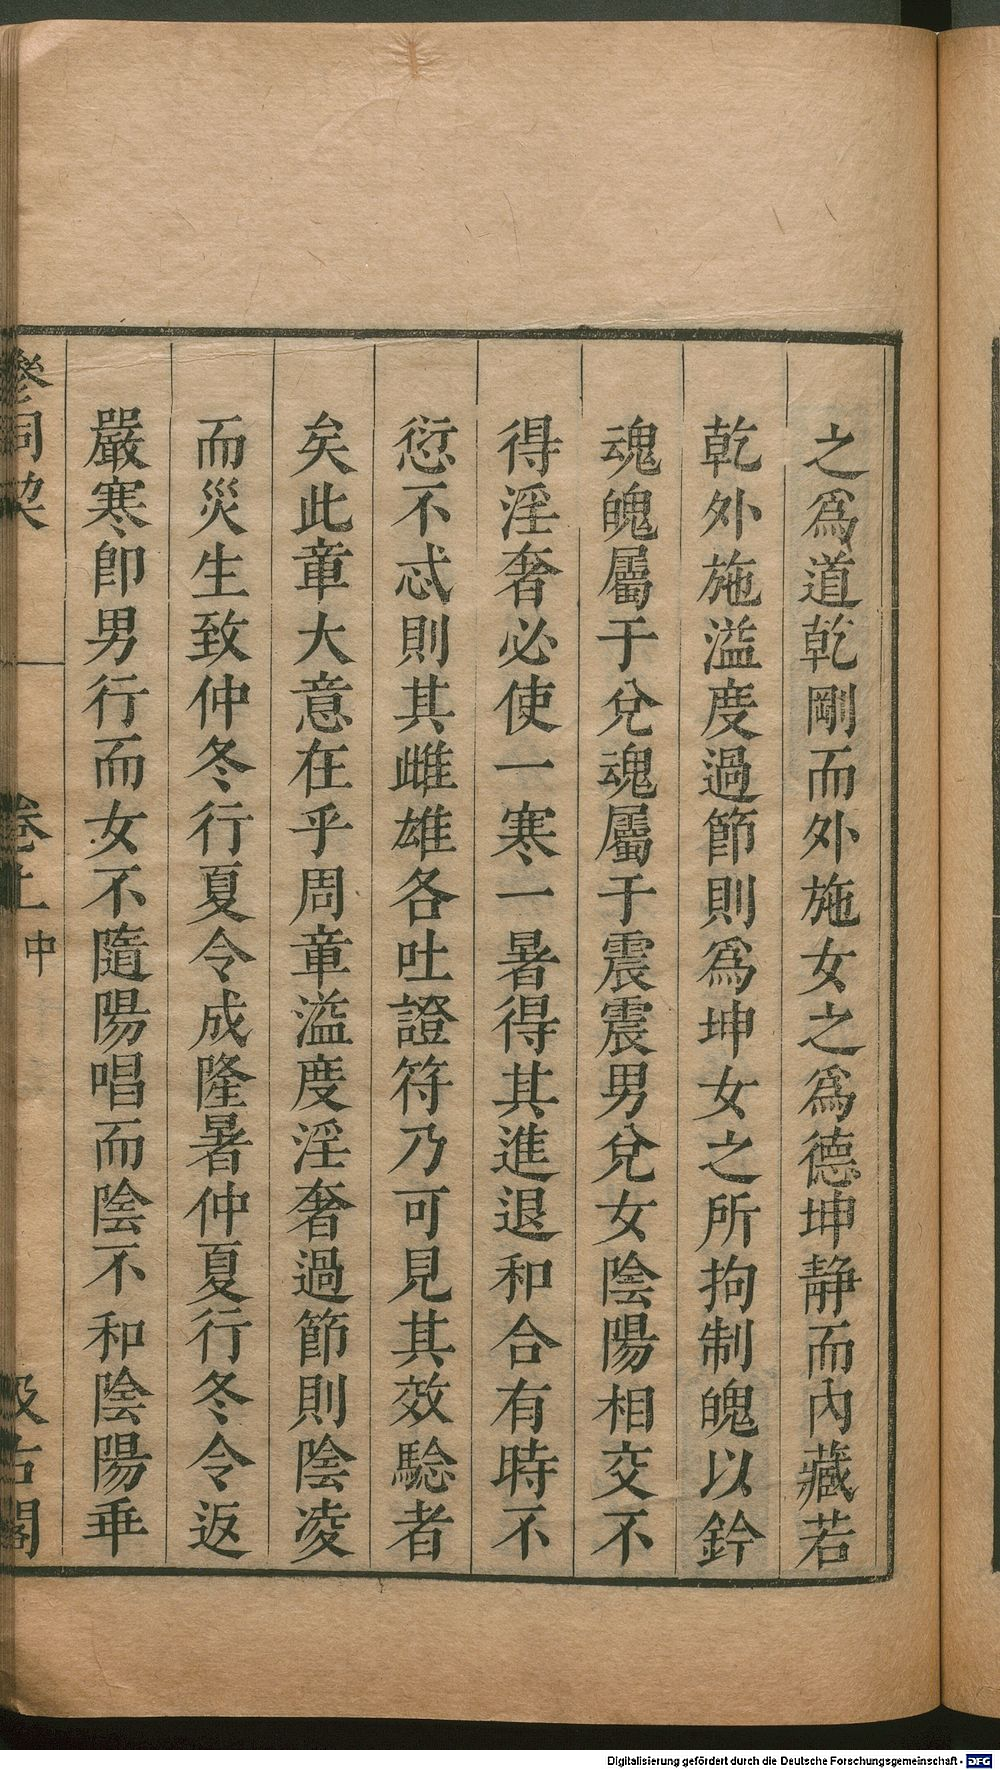 之爲道乾剛而外施女之爲德坤静而內藏若
乾外施溢度過節則爲坤女之所拘制魄以鈐
魂魄屬于兌魂屬于震震男兌女陰陽相交不
得淫奢必使一寒一暑得其進退和合有時不
愆不忒則其雌雄各吐證符乃可見其效驗者
矣此章大意在乎周章溢度淫奢過節則陰凌
而災生致仲冬行夏令成隆暑仲夏行冬令返
嚴寒卽男行而女不隨陽唱而陰不和陰陽乖
參同契 卷上 中 汲古閣
Digitalisierung gefördert durch die Deutsche Forschungsgemeinschaft - DFG